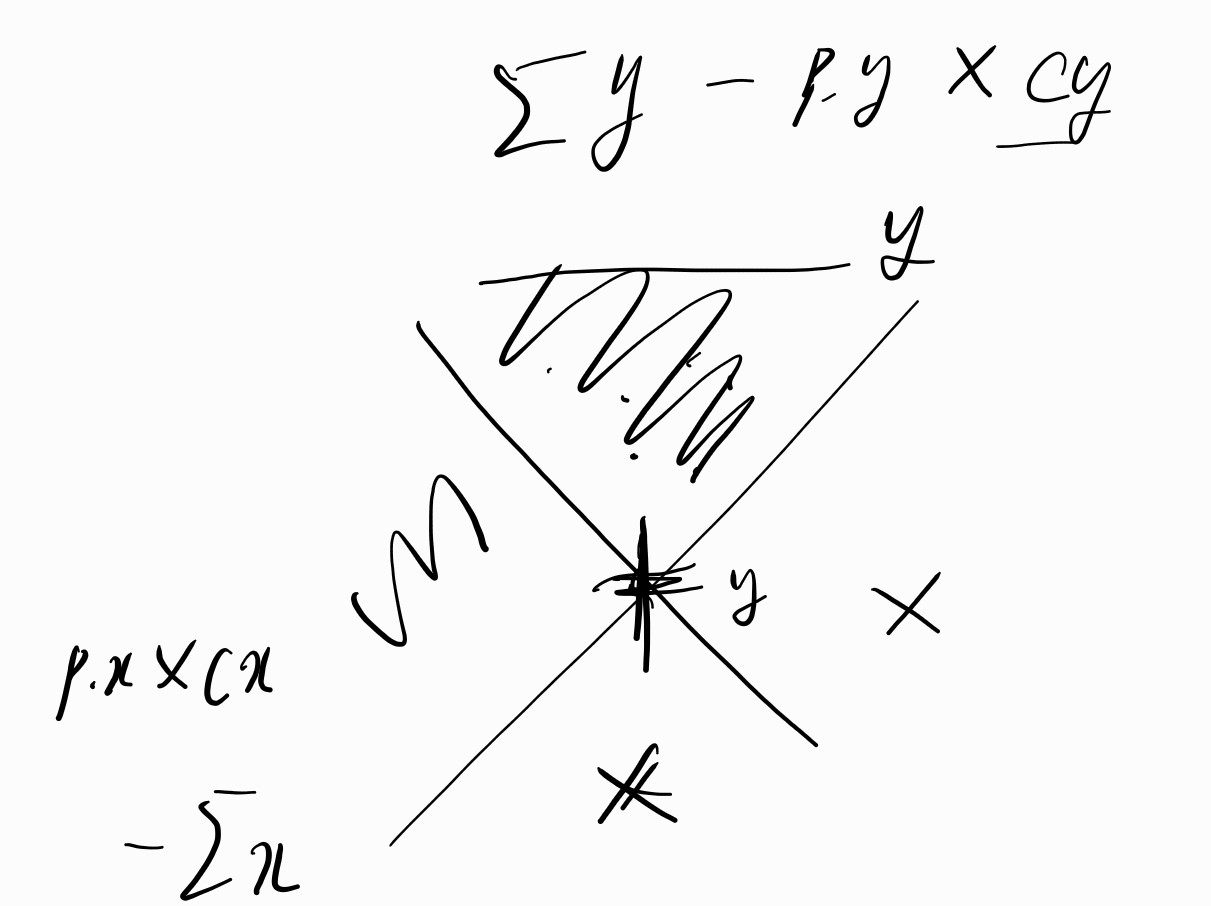 ∑y - p.y × cy
y
y
×
p.x × cx
×
- ∑x